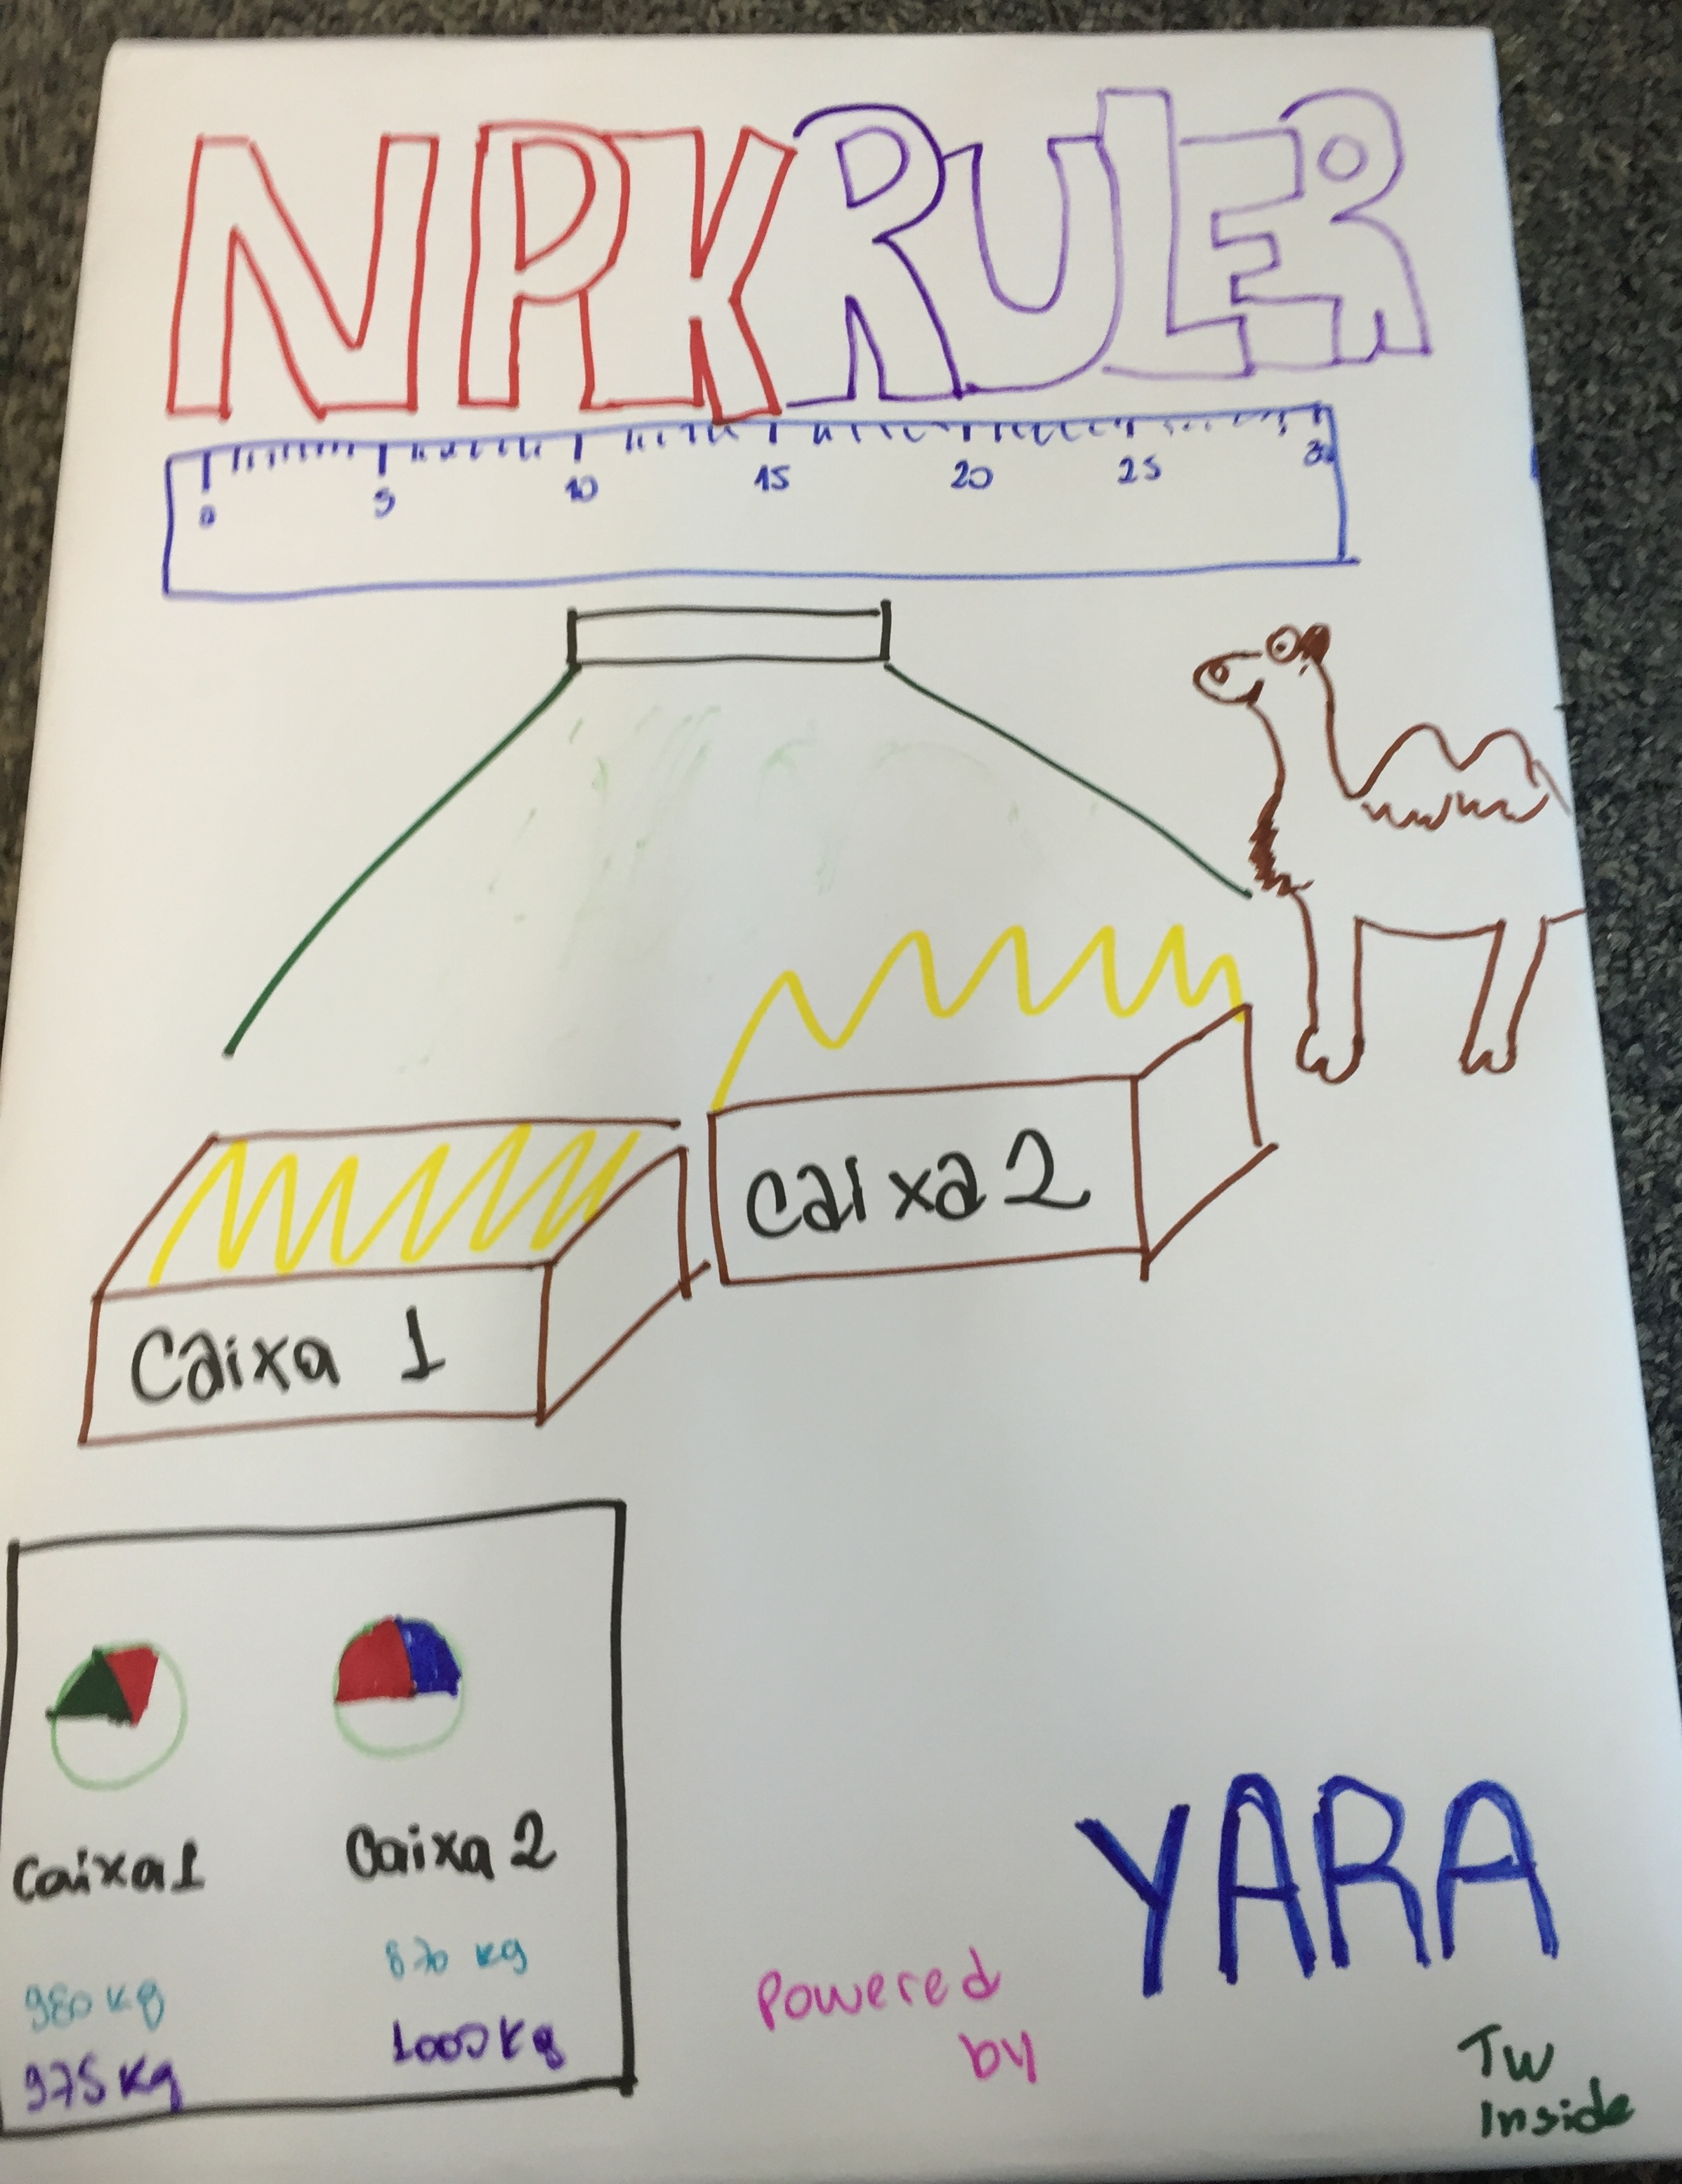 NPK RULER
0 5 10 15 20 25 30
Caixa 2
Caixa 1
Caixa 1 Caixa 2
980 kg 870 kg
975 kg 1000 kg
Powered
by
YARA
TW
Inside